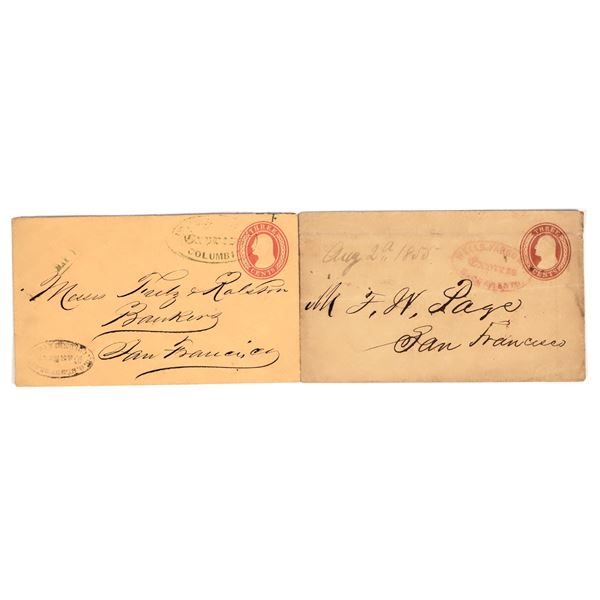 EXPRESS
COLUMBI
THREE
CENTS
MAY
Messrs Fritz & Ralston
Bankers
San Francisco
Aug 2d 1855
WELLS, FARGO
EXPRESS
THREE
CENTS
M F. W. Page
San Francisco